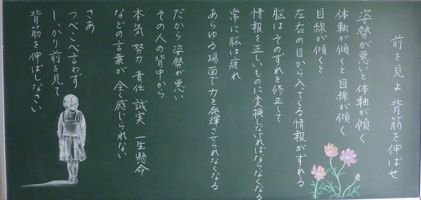 前を見よ 背筋を伸ばせ
姿勢が悪いと体軸が傾く
体軸が傾くと目線が傾く
目線が傾くと
左右の目から入ってくる情報がずれる
脳はそのずれを修正して
情報を正しいものに変換しなければならなくなる
常に脳は疲れ
あらゆる場面で力を発揮させられなくなる
だから姿勢が悪い
その人の背中から
本気 努力 責任 誠実 一生懸命
などの言葉が全く感じられない
さあ
つべこべ言わず
しっかり前を見て
背筋を伸ばしなさい